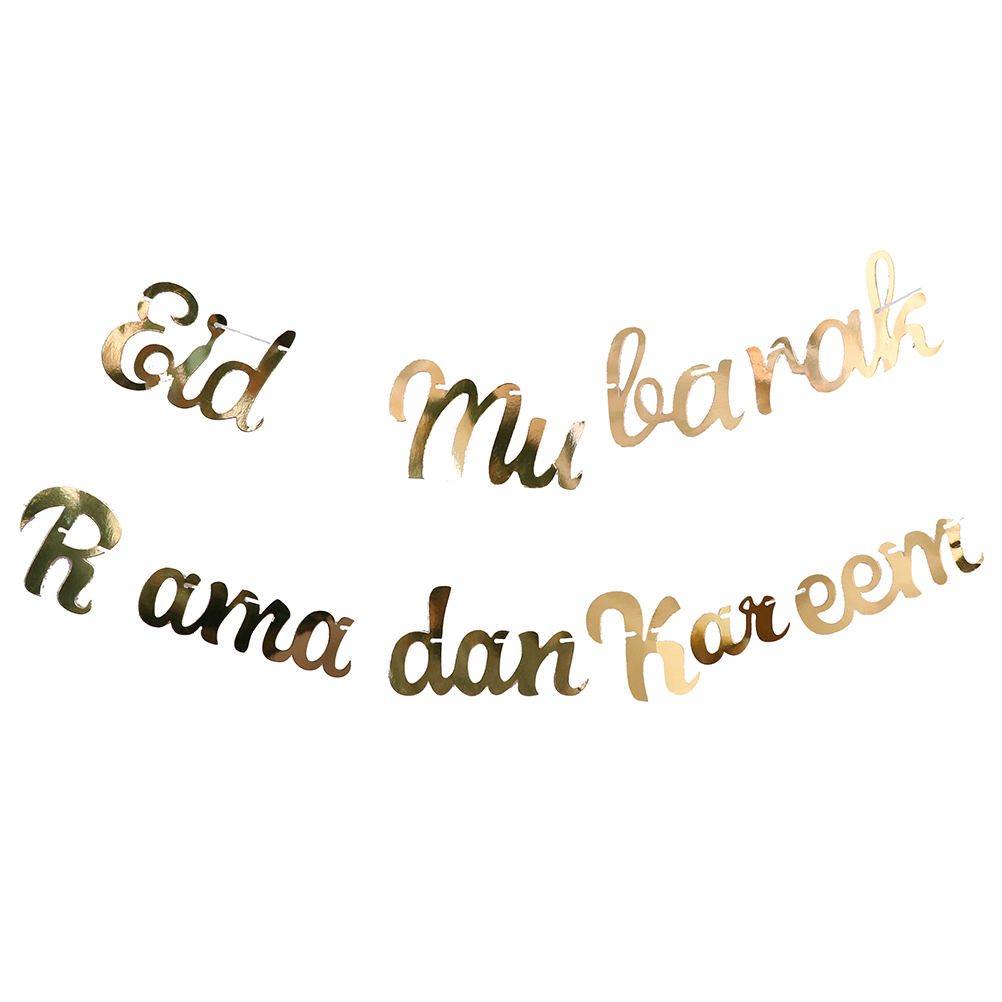 Eid Mubarak
Ramadan Kareem